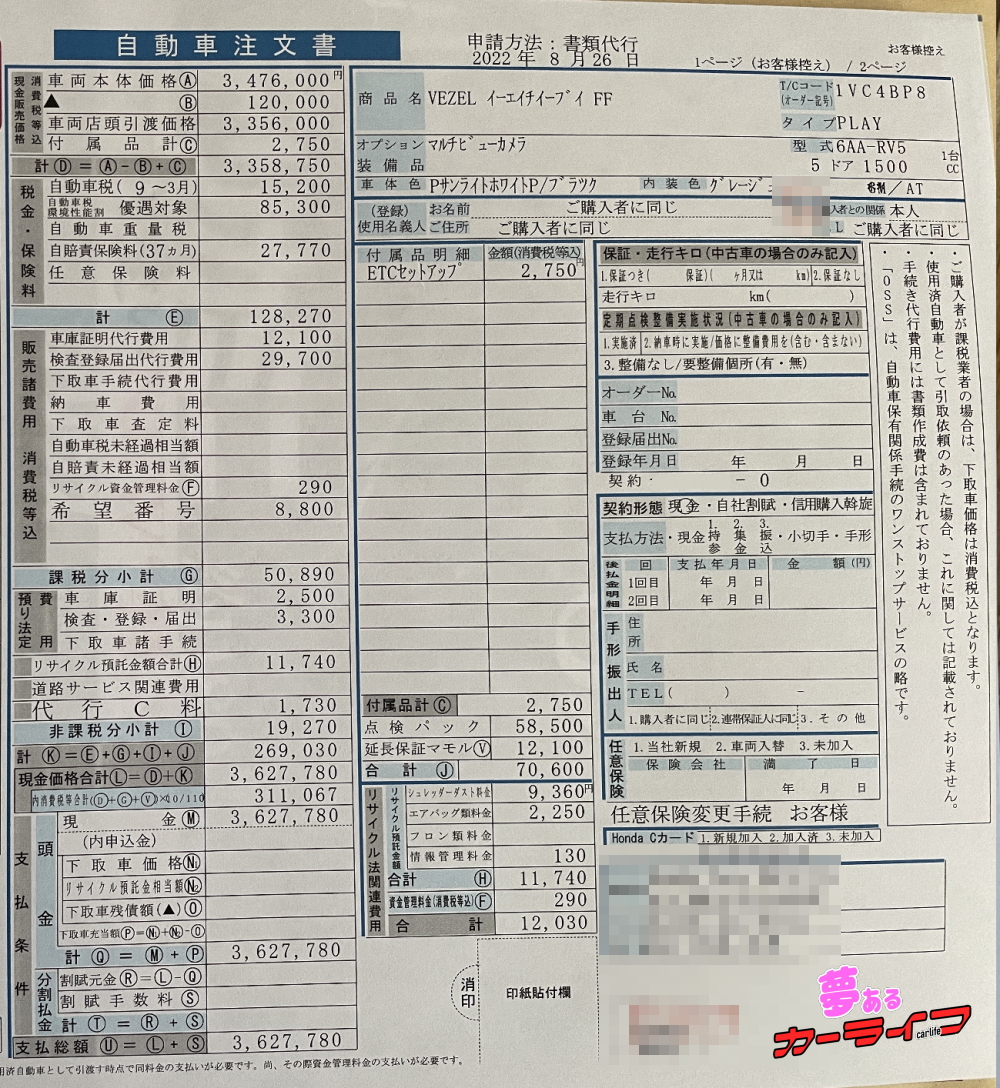 自動車注文書
申請方法：書類代行
2022年 8月26日
お客様控え
1ページ（お客様控え）/ 2ページ
現金販売価格 消費税等込
車両本体価格Ⓐ 3,476,000円
▲ Ⓑ 120,000
車両店頭引渡価格 3,356,000
付属品計Ⓒ 2,750
計Ⓓ＝Ⓐ－Ⓑ＋Ⓒ 3,358,750
税金・保険料
自動車税( 9 ～3月) 15,200
自動車税環境性能割 優遇対象 85,300
自動車重量税
自賠責保険料(37ヵ月) 27,770
任意保険料
計 Ⓔ 128,270
販売諸費用 消費税等込
車庫証明代行費用 12,100
検査登録届出代行費用 29,700
下取車手続代行費用
納車費用
下取車査定料
自動車税未経過相当額
自賠責未経過相当額
リサイクル資金管理料金Ⓕ 290
希望番号 8,800
課税分小計 Ⓖ 50,890
預り法定費用
車庫証明 2,500
検査・登録・届出 3,300
下取車諸手続
リサイクル預託金額合計Ⓗ 11,740
道路サービス関連費用
代行C料 1,730
非課税分小計 Ⓘ 19,270
計Ⓚ＝Ⓔ＋Ⓖ＋Ⓘ＋Ⓙ 269,030
現金価格合計Ⓛ＝Ⓓ＋Ⓚ 3,627,780
内消費税等合計(Ⓓ＋Ⓖ＋Ⓥ)×10/110 311,067
支払条件
頭金
現金Ⓜ 3,627,780
(内申込金)
下取車価格N₁
リサイクル預託金相当額N₂
下取車残債額(▲)Ⓞ
下取車充当額Ⓟ＝N₁＋N₂－Ⓞ
計Ⓠ＝Ⓜ＋Ⓟ 3,627,780
分割払金
割賦元金Ⓡ＝Ⓛ－Ⓠ
割賦手数料Ⓢ
計Ⓣ＝Ⓡ＋Ⓢ
支払総額Ⓤ＝Ⓛ＋Ⓢ 3,627,780
用済自動車として引渡す時点で同料金の支払いが必要です。尚、その際資金管理料金の支払いが必要です。
商品名 VEZEL イーエイチイーブイ FF
T/Cコード(オーダー記号) 1VC4BP8
タイプ PLAY
オプション装備品 マルチビューカメラ
型式 6AA-RV5
5ドア 1500 1台 CC
車体色 PサンライトホワイトP/ブラック 内装色 グレージュ
／AT
(登録)使用名義人
お名前 ご購入者に同じ
入者との関係 本人
ご住所 ご購入者に同じ
L ご購入者に同じ
付属品明細 金額(消費税等込)
ETCセットアップ 2,750円
付属品計Ⓒ 2,750
点検パック 58,500
延長保証マモルⓋ 12,100
合計Ⓙ 70,600
リサイクル法関連費用
リサイクル預託金額
シュレッダーダスト料金 9,360円
エアバッグ類料金 2,250
フロン類料金
情報管理料金 130
合計 Ⓗ 11,740
資金管理料金(消費税等込)Ⓕ 290
合計 12,030
消印
印紙貼付欄
保証・走行キロ(中古車の場合のみ記入)
1.保証つき( 保証)( ヶ月又は km) 2.保証なし
走行キロ km( )
定期点検整備実施状況(中古車の場合のみ記入)
1.実施済 2.納車時に実施/価格に整備費用を(含む・含まない)
3.整備なし/要整備個所(有・無)
オーダーNo.
車台No.
登録届出No.
登録年月日 年 月 日
契約・ －0
契約形態 現金・自社割賦・信用購入斡旋
支払方法・現金 1.持参 2.集金 3.振込・小切手・手形
後払金明細
回 支払年月日 金額(円)
1回目 年 月 日
2回目 年 月 日
手形振出人
住所
氏名
TEL( ) －
1.購入者に同じ 2.連帯保証人に同じ 3.その他
任意保険
1.当社新規 2.車両入替 3.未加入
保険会社 満了日
年 月 日
任意保険変更手続 お客様
Honda Cカード 1.新規加入 2.加入済 3.未加入
・ご購入者が課税業者の場合は、下取車価格は消費税込となります。
・使用済自動車として引取依頼のあった場合、これに関しては記載されておりません。
・手続き代行費用には書類作成費は含まれておりません。
・「OSS」は、自動車保有関係手続のワンストップサービスの略です。
夢ある
カーライフ
carlife